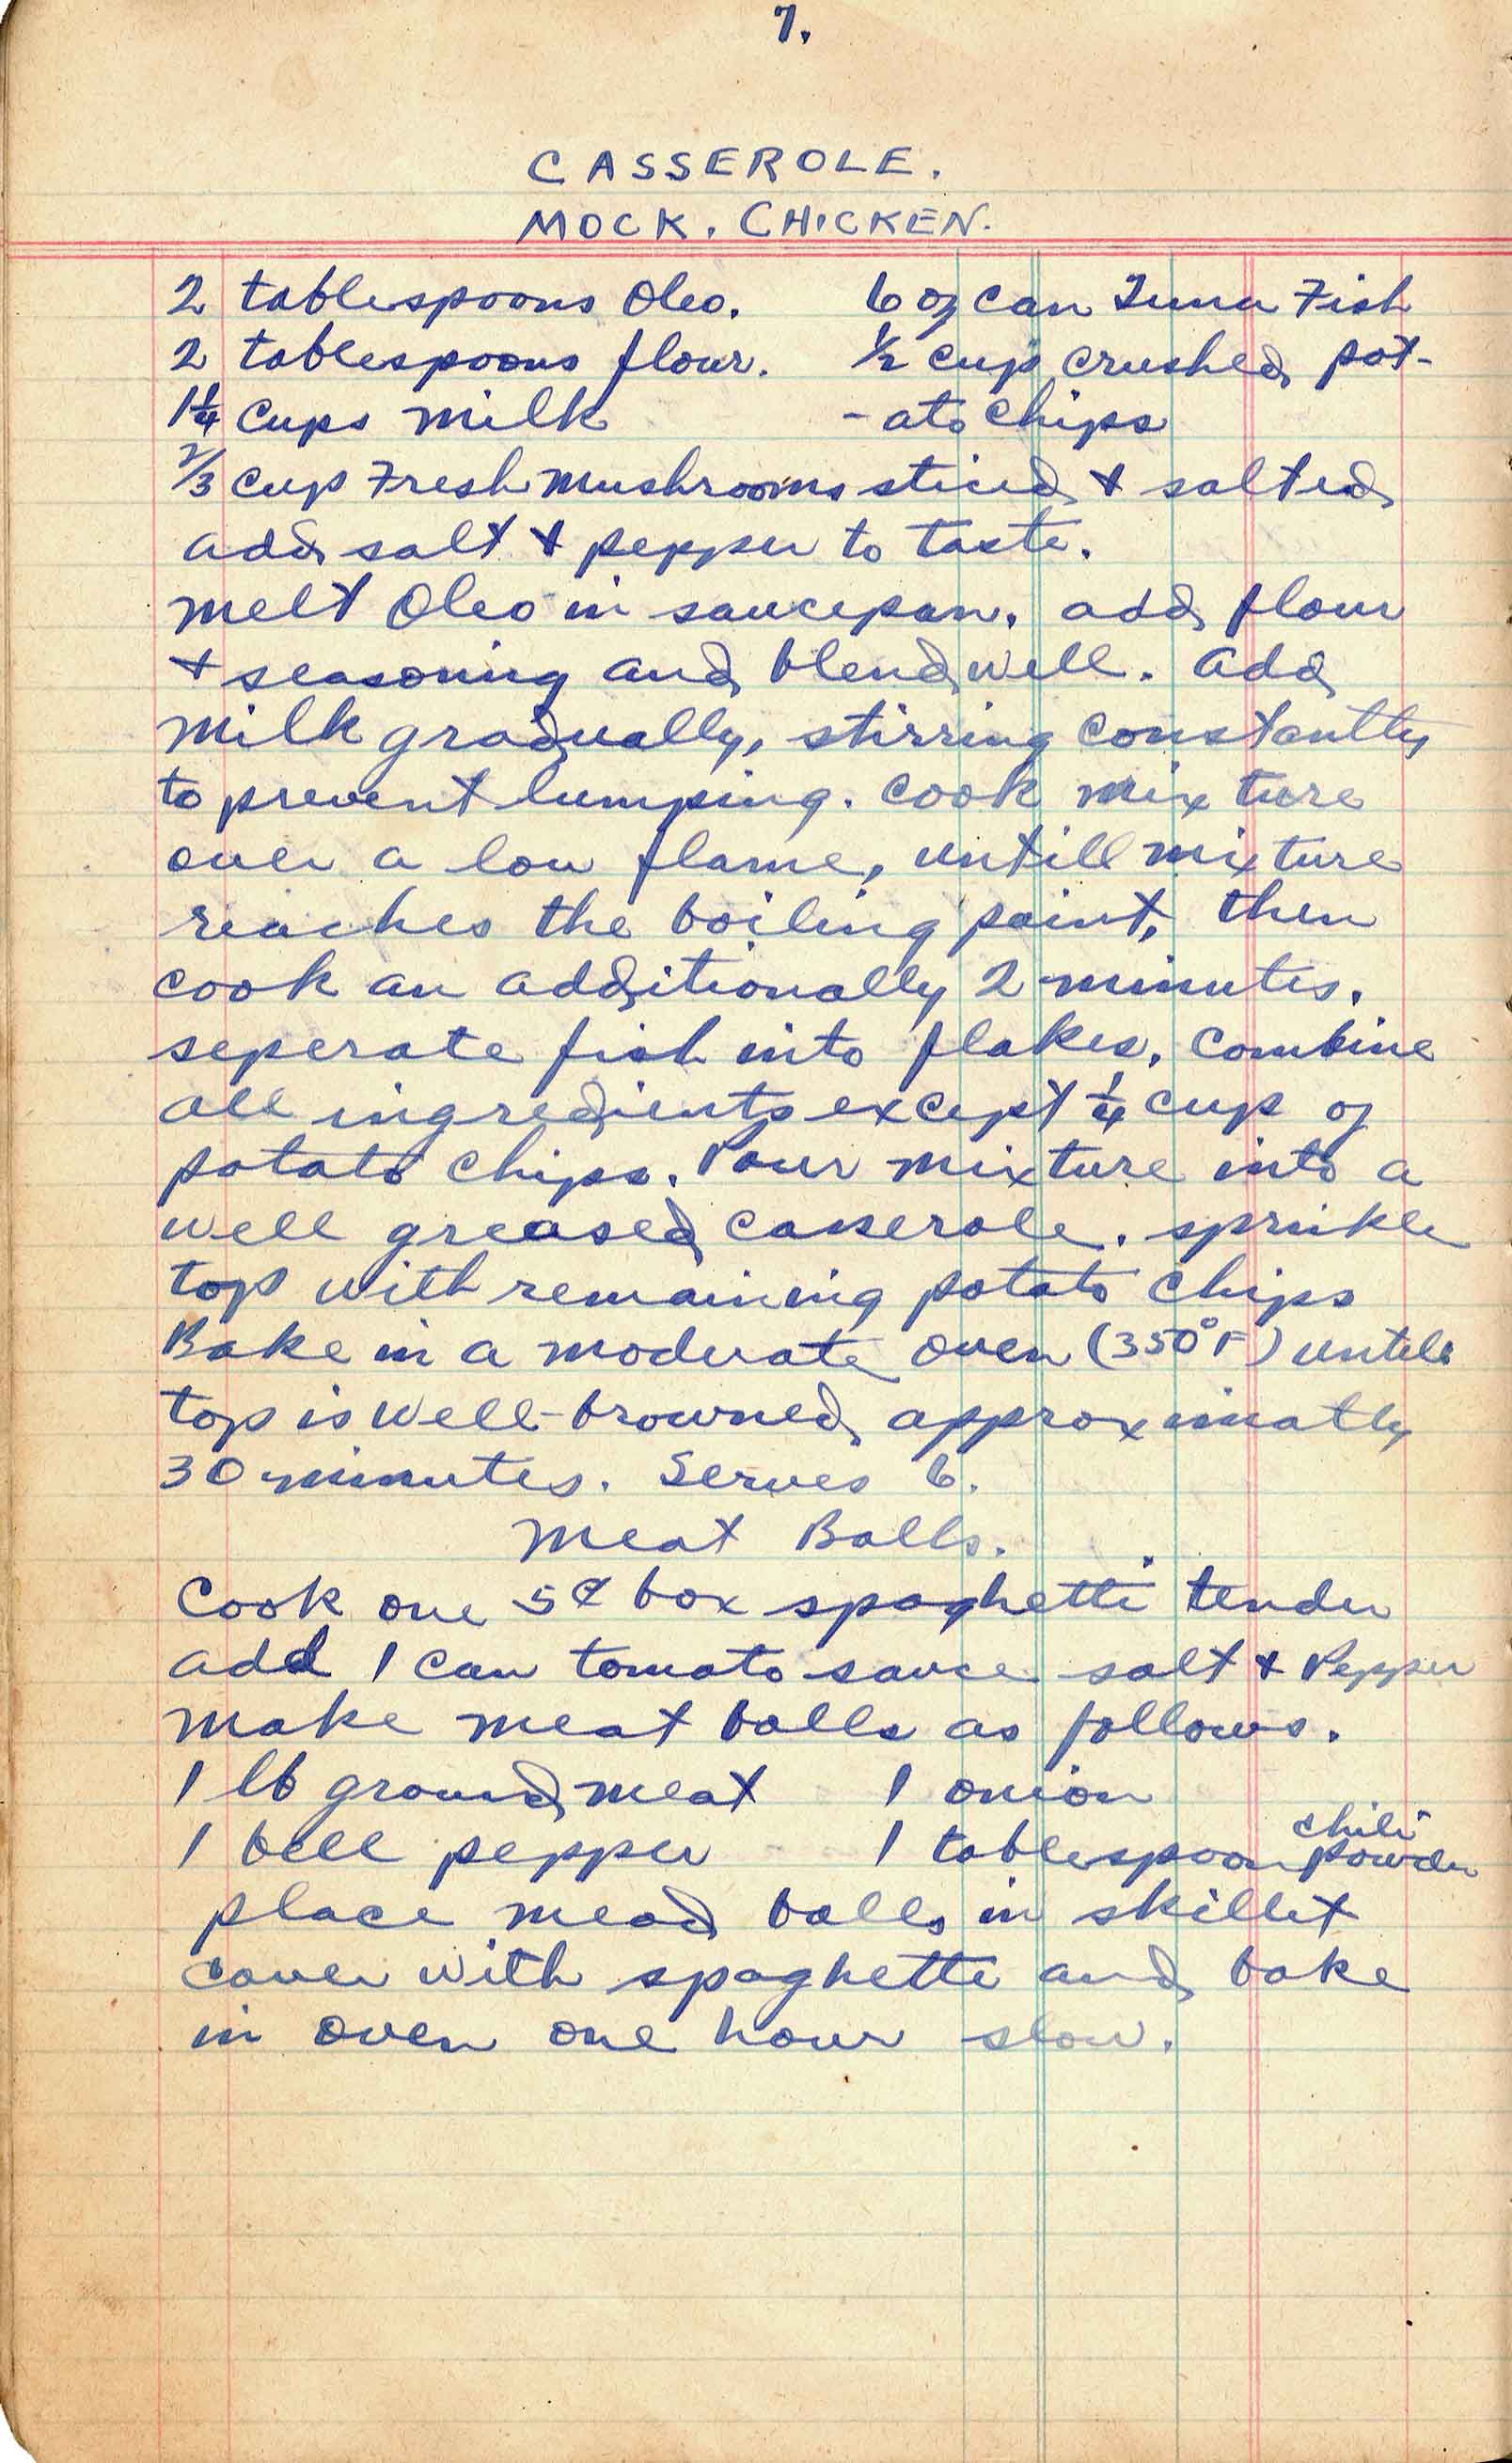 7.
CASSEROLE.
MOCK. CHICKEN.
2 tablespoons Oleo. 6 oz can Tuna Fish
2 tablespoons flour. ½ cup crushed pot-
1¼ cups milk - ato chips
2/3 cup Fresh mushrooms sliced + salted
add salt + pepper to taste.
melt Oleo in saucepan. add flour
+ seasoning and blend well. add
milk gradually, stirring constantly
to prevent lumping. cook mixture
over a low flame, untill mixture
reaches the boiling point, then
cook an additionally 2 minutes.
seperate fish into flakes. Combine
all ingredients except ¼ cup of
potato chips. Pour mixture into a
well greased casserole. sprinkle
top with remaining potato chips
Bake in a moderate oven (350°F) until
top is well-browned approximatly
30 minutes. Serves 6.
Meat Balls.
Cook one 5¢ box spaghetti tender
add 1 can tomato sauce salt + Pepper
make meat balls as follows.
1 lb ground meat 1 onion
1 bell pepper 1 tablespoon chili powder
place mead balls in skillet
cover with spaghetti and bake
in oven one hour slow.